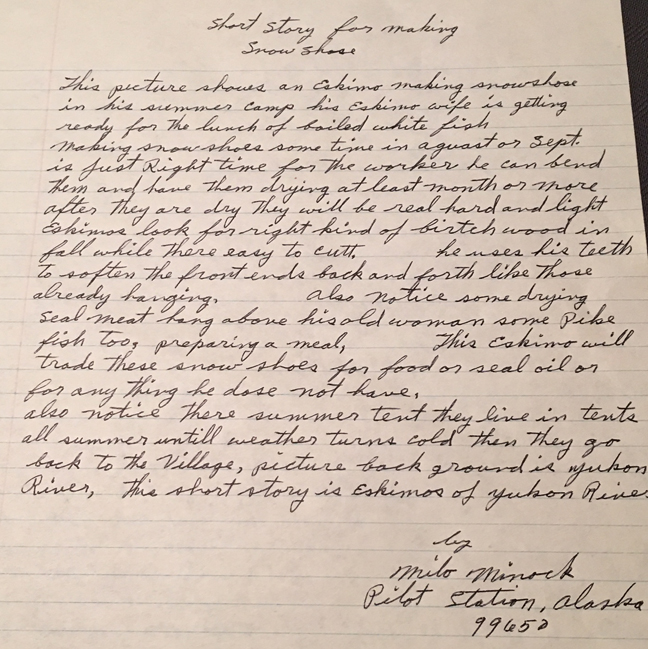 Short Story for making
Snow Shose
This picture shows an Eskimo making snowshose
in his summer camp his Eskimo wife is getting
ready for the lunch of boiled white fish
making snow shoes some time in aguast or Sept.
is just Right time for the worker he can bend
them and have them drying at least month or more
after they are dry they will be real hard and light
Eskimos look for right kind of birtch wood in
fall while there easy to cutt. he uses his teeth
to soften the front ends back and forth like those
already hanging. Also notice some drying
seal meat hang above his old woman some Pike
fish too, preparing a meal, This Eskimo will
trade these snow shoes for food or seal oil or
for any thing he dose not have,
also notice there summer tent they live in tents
all summer untill weather turns cold then they go
back to the Village, picture back ground is yukon
River, this short story is Eskimos of yukon River
by
Milo Minock
Pilot Station, Alaska
99650